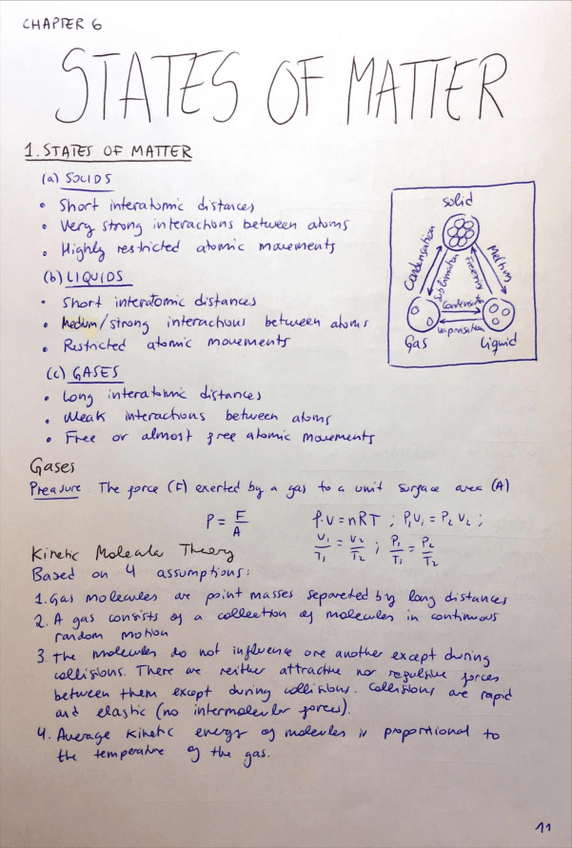 CHAPTER 6
STATES OF MATTER
1. STATES OF MATTER
(a) SOLIDS
• Short interatomic distances
• Very strong interactions between atoms
• Highly restricted atomic movements
(b) LIQUIDS
• Short interatomic distances
• Medium/strong interactions between atoms
• Restricted atomic movements
(c) GASES
• Long interatomic distances
• Weak interactions between atoms
• Free or almost free atomic movements
Solid
Condensation
Sublimation
Freezing
Melting
Condensation
Vaporisation
Gas
Liquid
Gases
Preasure: The force (F) exerted by a gas to a unit surface area (A)
P = F/A
P·V = nRT ; P₁V₁ = P₂V₂ ;
V₁/T₁ = V₂/T₂ ; P₁/T₁ = P₂/T₂
Kinetic Molecula Theory
Based on 4 assumptions:
1. Gas molecules are point masses separeted by long distances
2. A gas consists of a collection of molecules in continuous
random motion
3. The molecules do not influence one another except during
collisions. There are neither attractive nor repulsive forces
between them except during collisions. Collisions are rapid
and elastic (no intermolecular forces).
4. Average kinetic energy of molecules is proportional to
the temperature of the gas.
11